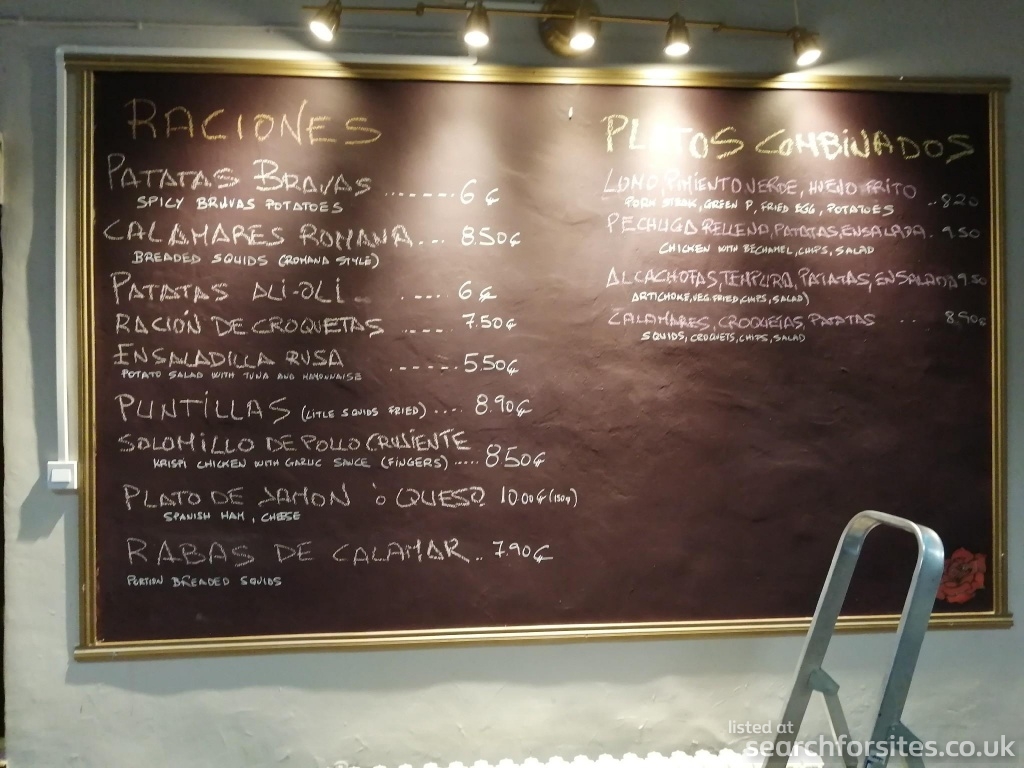 RACIONES
PATATAS BRAVAS ........ 6€
SPICY BRAVAS POTATOES
CALAMARES ROMANA... 8.50€
BREADED SQUIDS (ROMANA STYLE)
PATATAS ALI-OLI ..... 6€
RACIÓN DE CROQUETAS ..... 7.50€
ENSALADILLA RUSA ....... 5.50€
POTATO SALAD WITH TUNA AND MAYONNAISE
PUNTILLAS (LITLE SQUIDS FRIED) .... 8.90€
SOLOMILLO DE POLLO CRUJIENTE
KRISPI CHICKEN WITH GARLIC SAUCE (FINGERS) ..... 850€
PLATO DE JAMON ó QUESO 10.00€ (150g)
SPANISH HAM, CHEESE
RABAS DE CALAMAR.. 7.90€
PORTION BREADED SQUIDS
PLATOS COMBINADOS
LOMO, PIMIENTO, VERDE, HUEVO FRITO ..8.20
PORK STEAK, GREEN P, FRIED EGG, POTATOES
PECHUGA RELLENA, PATATAS, ENSALADA. 9.50
CHICKEN WITH BECHAMEL, CHIPS, SALAD
ALCACHOFAS, TEMPURA, PATATAS, ENSALADA 9.50
ARTICHOKE, VEG. FRIED, CHIPS, SALAD)
CALAMARES, CROQUETAS, PATATAS .... 8,90€
SQUIDS, CROQUETS, CHIPS, SALAD
listed at
searchforsites.co.uk